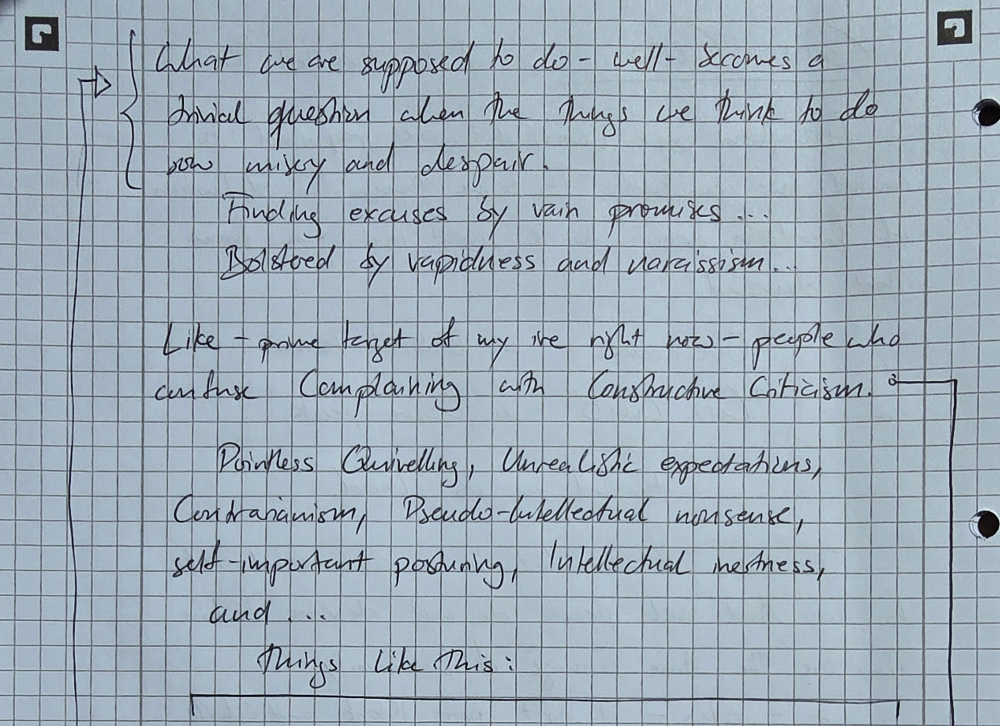 What we are supposed to do - well - becomes a
trivial question when the things we think to do
sow misery and despair.
Finding excuses by vain promises...
Bolstered by vapidness and narcissism...
Like - prime target of my ire right now - people who
confuse Complaining with Constructive Criticism.
Pointless Quivelling, Unrealistic expectations,
Contrarianism, Pseudo-Intellectual nonsense,
self-important posturing, Intellectual inertness,
and ...
Things Like This: